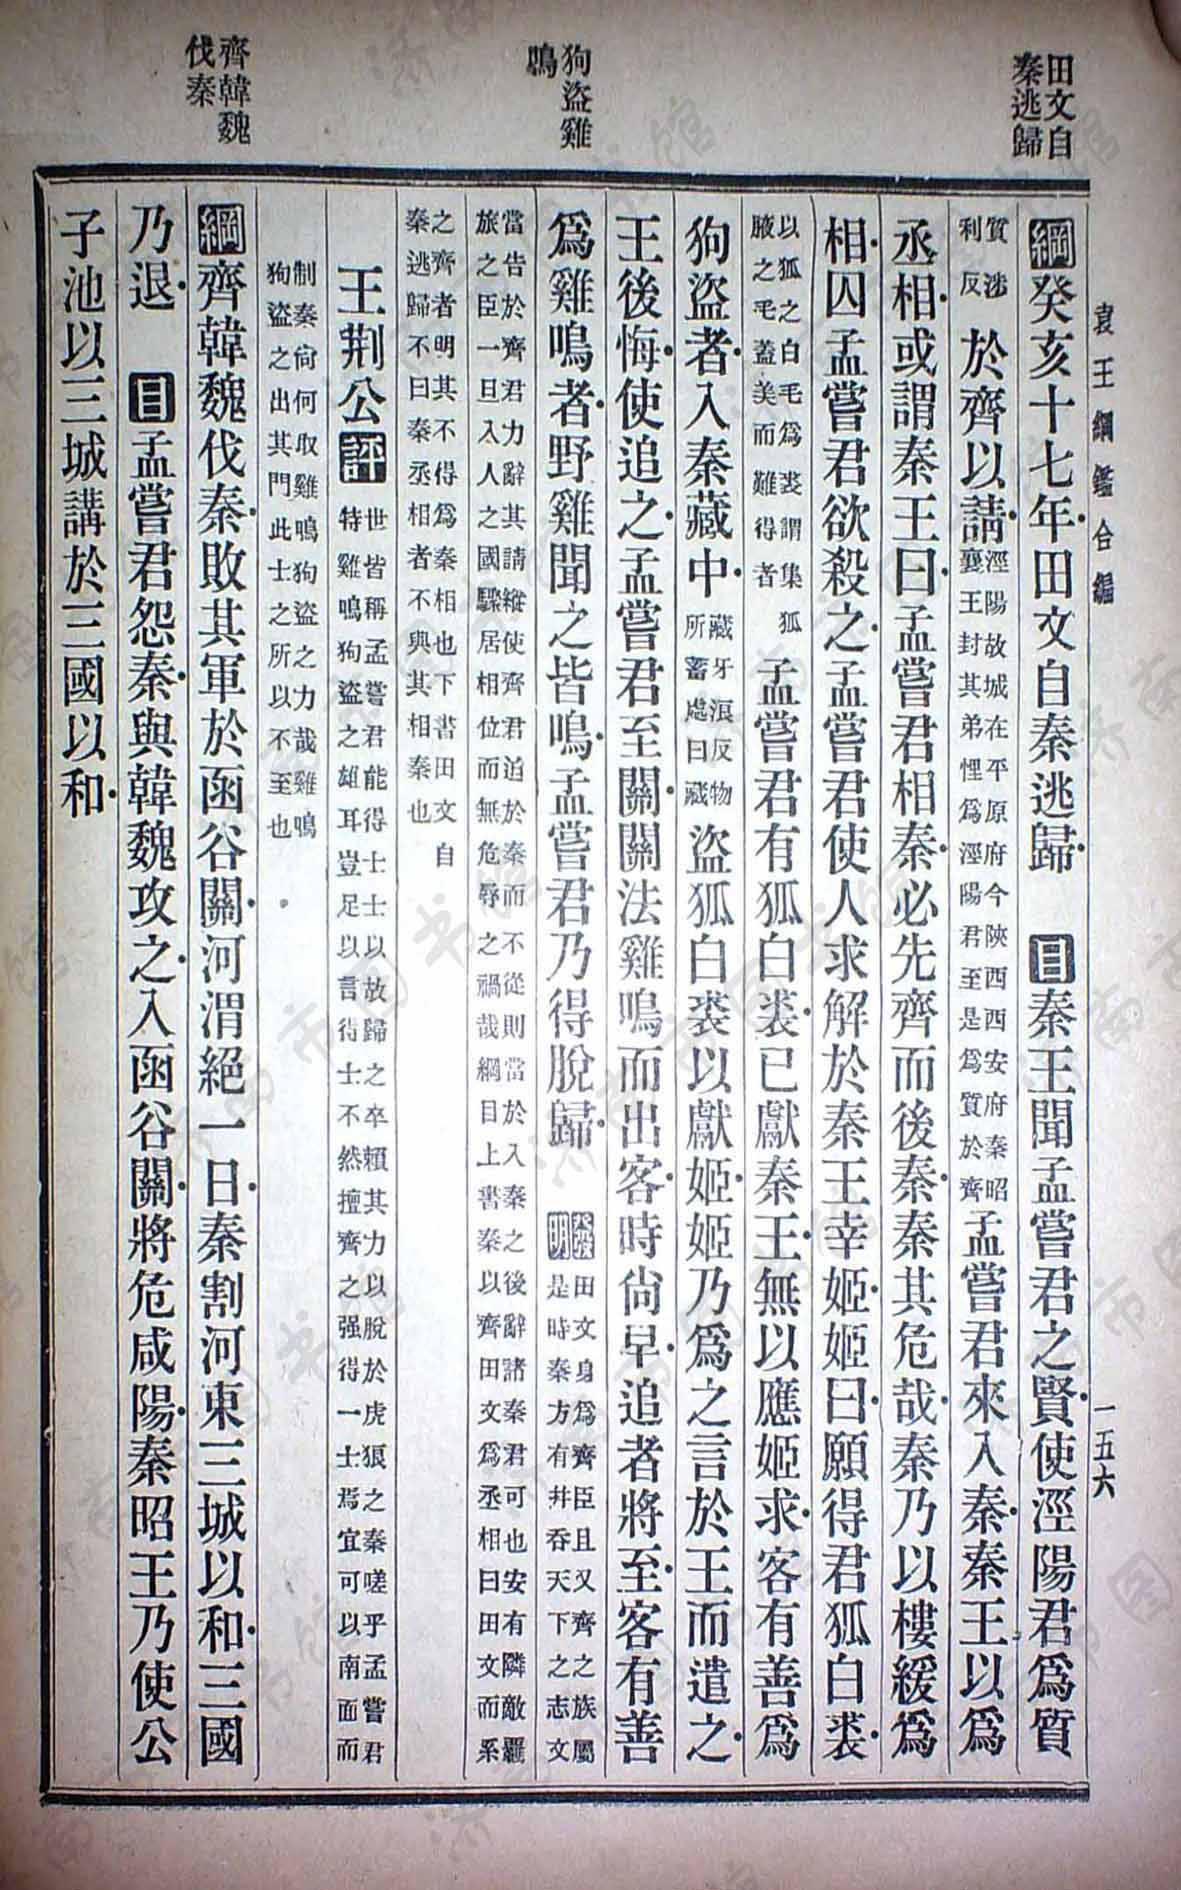 田文自
秦逃歸
狗盜雞
鳴
齊韓魏
伐秦
袁王綱鑑合編
一五六
綱癸亥十七年田文自秦逃歸　目秦王聞孟嘗君之賢使涇陽君爲質
質涉
利反
於齊以請
涇陽故城在平原府今陝西西安府秦昭
襄王封其弟悝爲涇陽君至是爲質於齊
孟嘗君來入秦秦王以爲
丞相或謂秦王曰孟嘗君相秦必先齊而後秦秦其危哉秦乃以樓緩爲
相囚孟嘗君欲殺之孟嘗君使人求解於秦王幸姬姬曰願得君狐白裘
以狐之白毛爲裘謂集狐
腋之毛蓋美而難得者
孟嘗君有狐白裘已獻秦王無以應姬求客有善爲
狗盜者入秦藏中
藏牙浪反物
所蓄處曰藏
盜狐白裘以獻姬姬乃爲之言於王而遣之
王後悔使追之孟嘗君至關關法雞鳴而出客時尙早追者將至客有善
爲雞鳴者野雞聞之皆鳴孟嘗君乃得脫歸　發明
田文身爲齊臣且又齊之族屬
是時秦方有井吞天下之志文
當告於齊君力辭其請縱使齊君迫於秦而不從則當於入秦之後辭諸秦君可也安有隣敵羈
旅之臣一旦入人之國驟居相位而無危辱之禍哉綱目上書秦以齊田文爲丞相曰田文而系
之齊者明其不得爲秦相也下書田文自
秦逃歸不曰秦丞相者不與其相秦也
王荆公評
世皆稱孟嘗君能得士士以故歸之卒賴其力以脫於虎狼之秦嗟乎孟嘗君
特雞鳴狗盜之雄耳豈足以言得士不然擅齊之强得一士焉宜可以南面而
制秦尙何取雞鳴狗盜之力哉雞鳴
狗盜之出其門此士之所以不至也
綱齊韓魏伐秦敗其軍於函谷關河渭絕一日秦割河東三城以和三國
乃退　目孟嘗君怨秦與韓魏攻之入函谷關將危咸陽秦昭王乃使公
子池以三城講於三國以和